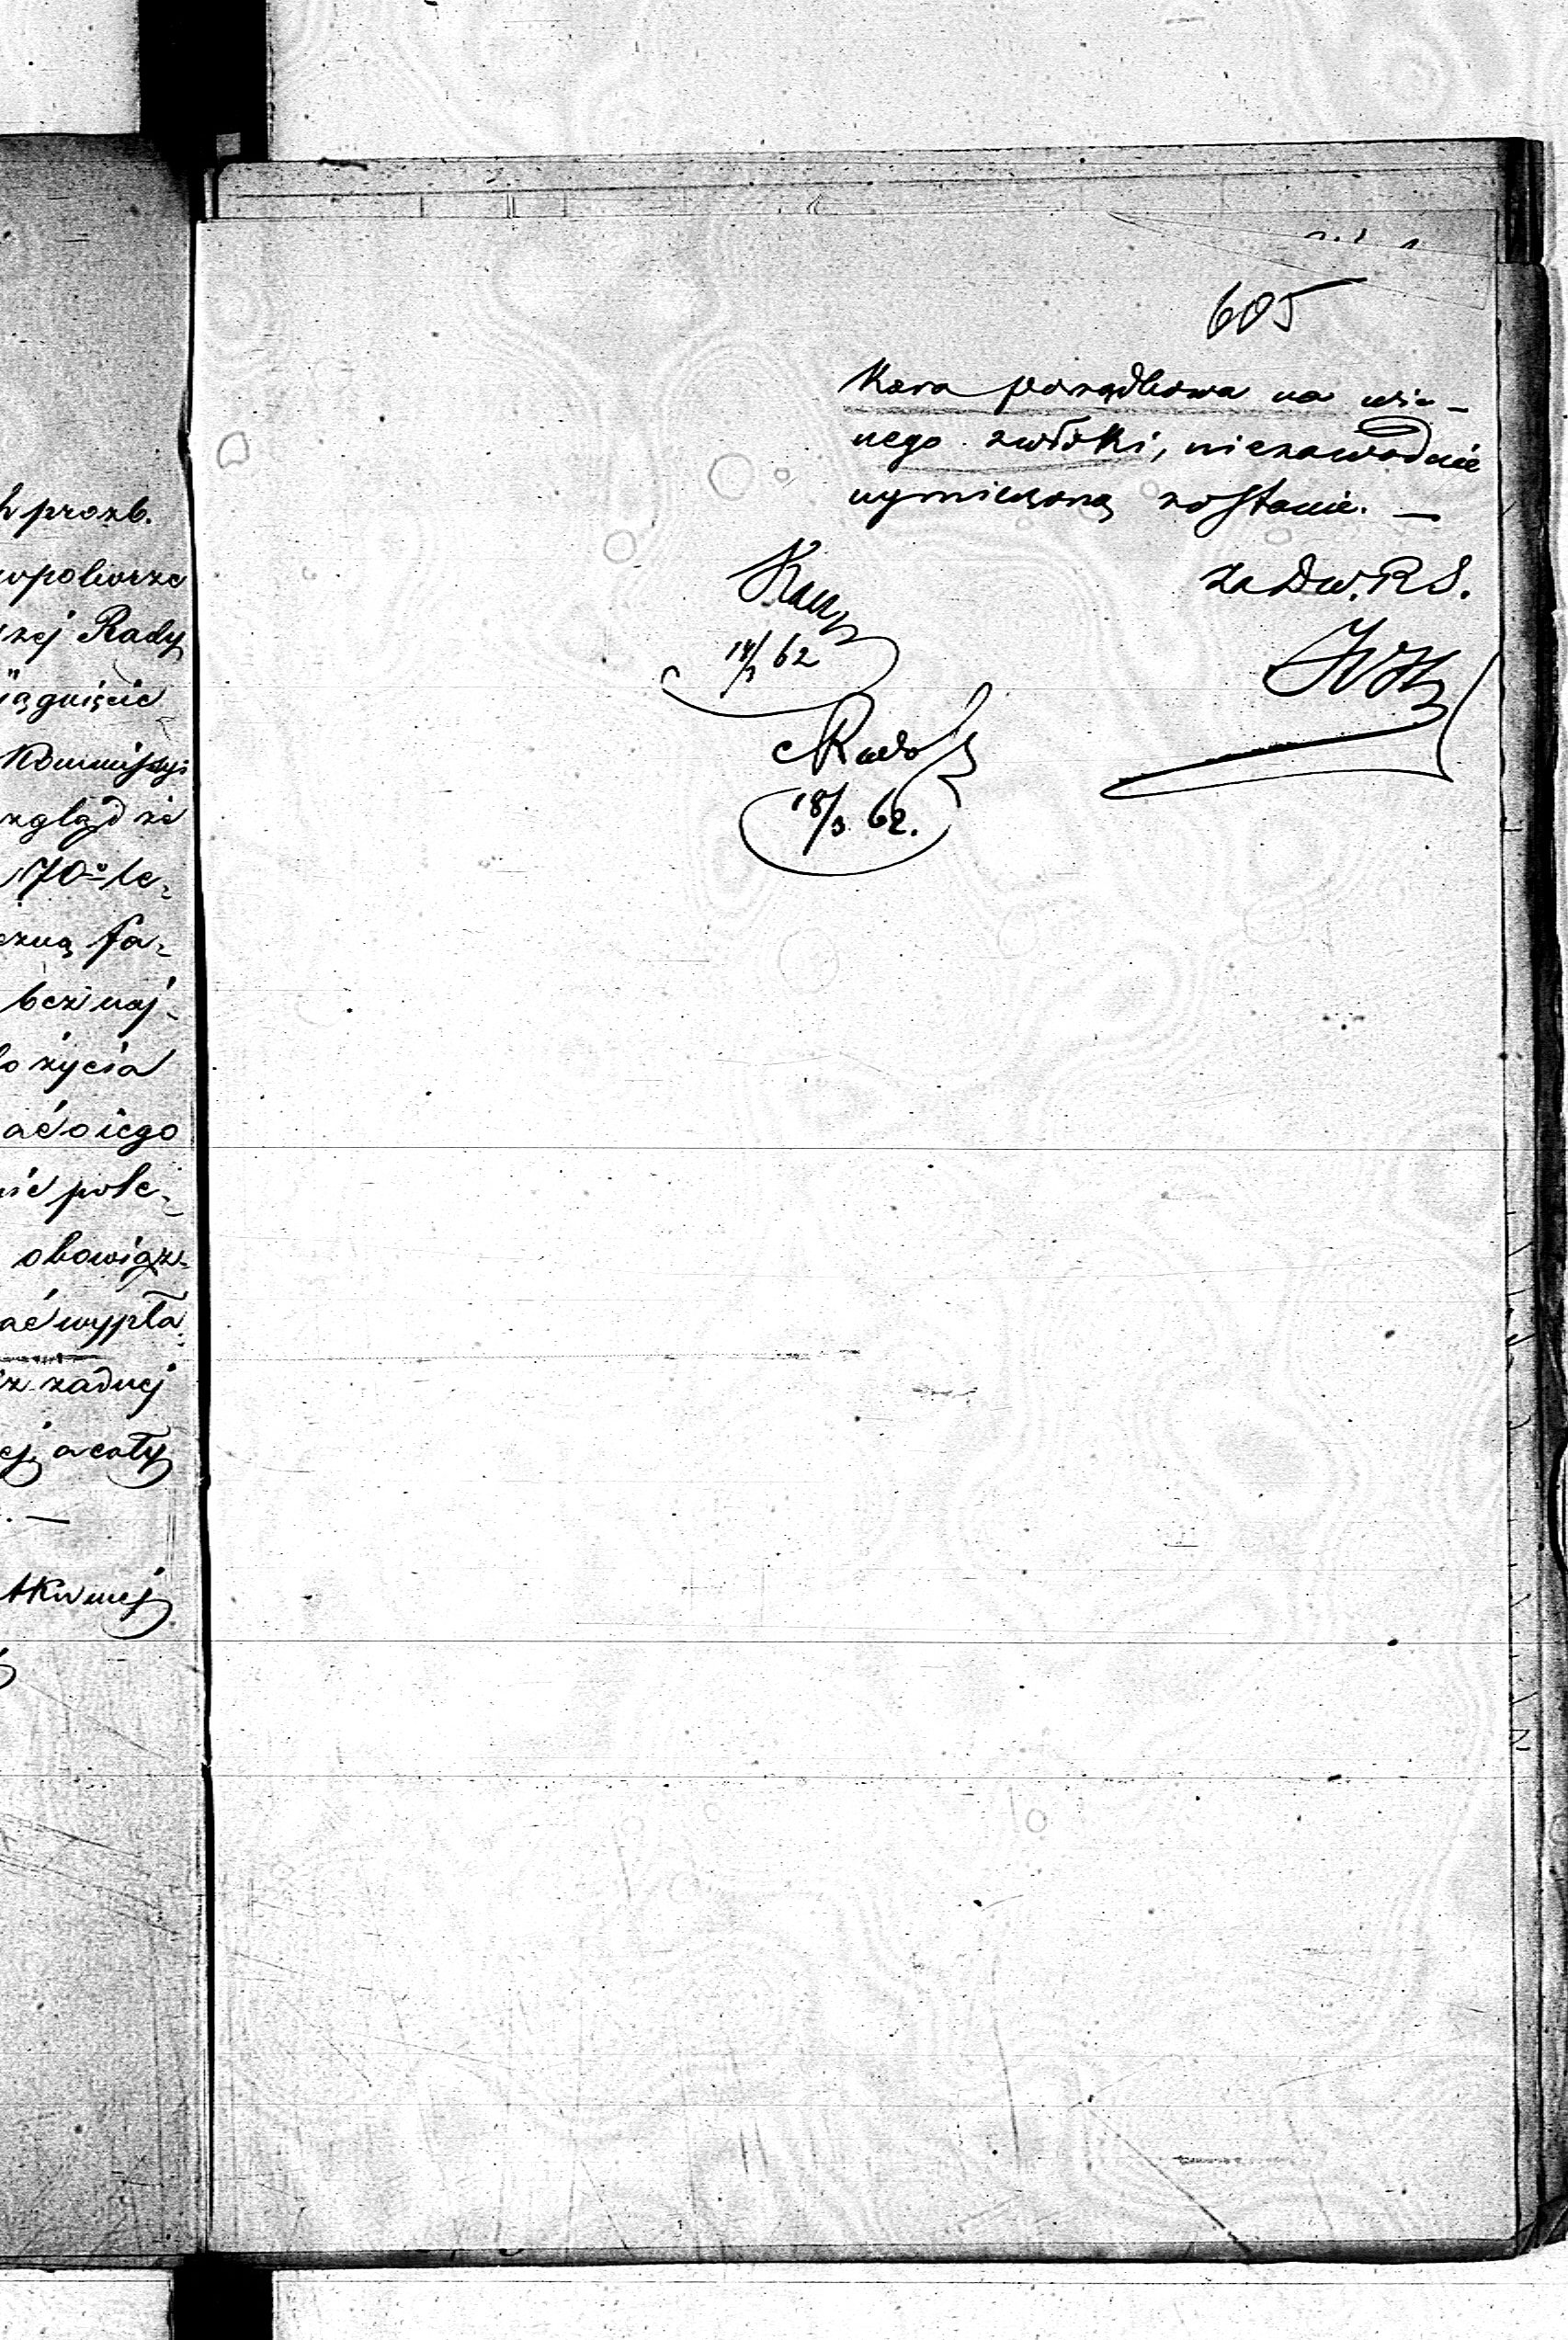 h prozb.
wpoborze
szej Rady
iągnięcie
Kommissyi
względ że
170-le-
czną fa-
bez naj-
do życia
ać o iego
nie pole-
obowiąz-
ać wypła
ez żadnej
ej, a cały
tkowej
605
Kara porządkowa na win-
nego zwłoki, niezawodnie
wymierzoną zostanie. —
Za Dw. R S.
14/3 62
18/3 62.